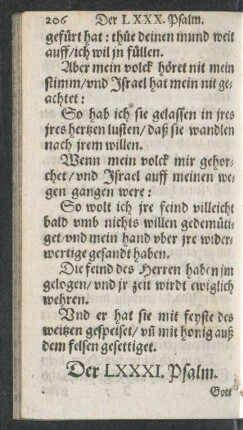 206 Der LXXX. Psalm.
gefürt hat: thüe deinen mund weit
auff/ich wil jn füllen.
Aber mein volck höret nit mein
stimm/vnd Jsrael hat mein nit ge-
achtet:
So hab ich sie gelassen in jres
jres hertzen lusten/ daß sie wandlen
nach jrem willen.
Wenn mein volck mir gehor-
chet/ vnd Jsrael auff meinen we-
gen gangen were:
So wolt ich jre feind villeicht
bald vmb nichts willen gedemüti-
get/vnd mein hand vber jre wider-
wertige gesandt haben.
Die feind des Herren haben jm
gelogen/ vnd jr zeit wirdt ewiglich
wehren.
Vnd er hat sie mit feyste des
weitzen gespeiset/ vñ mit honig auß
dem felsen gesettiget.
Der LXXXI. Psalm.
Gott